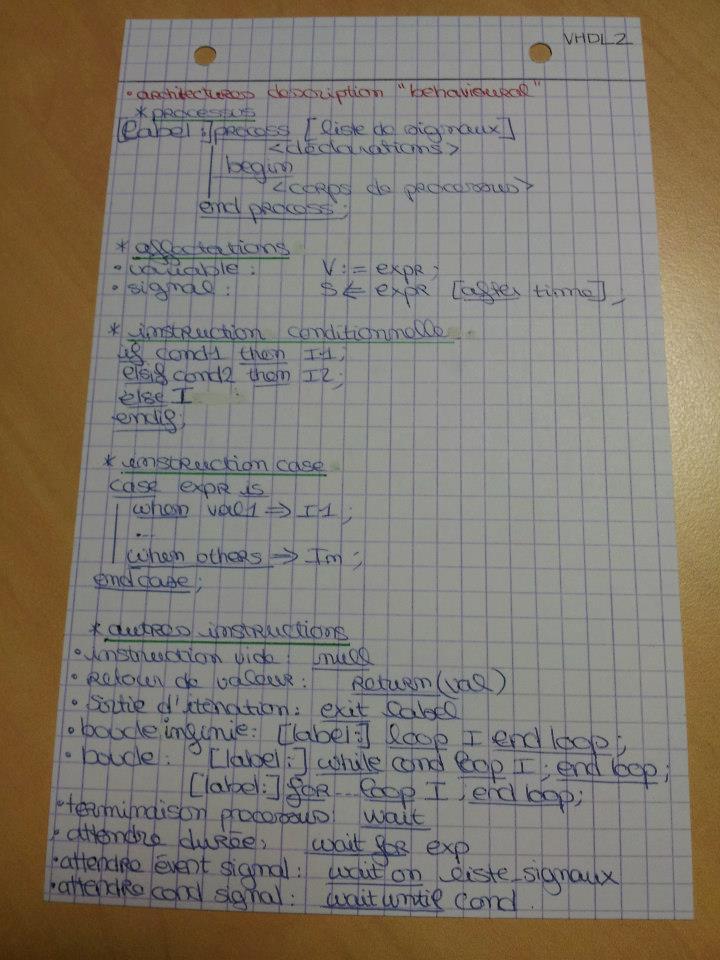 VHDL2
• architectures description "behavioural"
* processus
[label:] process [liste de signaux]
<déclarations>
begin
<corps de processus>
end process;
* affectations
• variable : V := expr;
• signal : S <= expr [after time];
* instruction conditionnelle
if cond1 then I1;
elsif cond2 then I2;
else I ;
endif;
* instruction case
case expr is
when val1 => I1;
...
when others => Im;
endcase;
* autres instructions
• instruction vide : null
• retour de valeur : return(val)
• sortie d'itération : exit label
• boucle infinie : [label:] loop I end loop;
• boucle : [label:] while cond loop I; end loop;
[label:] for ... loop I; end loop;
• terminaison processus : wait
• attendre durée : wait for exp
• attendre évent signal : wait on liste_signaux
• attendre cond signal : wait until cond.